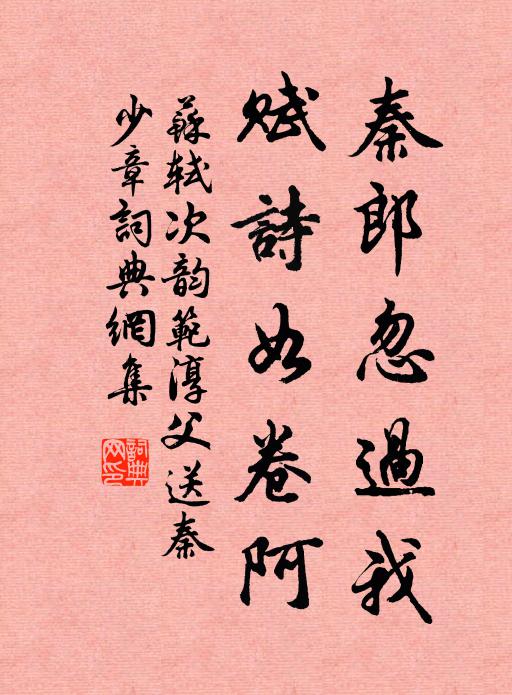 秦郎忽過我
賦詩如卷阿
蘇軾次韵範淳父送秦
少章詞典網集
詞典网印